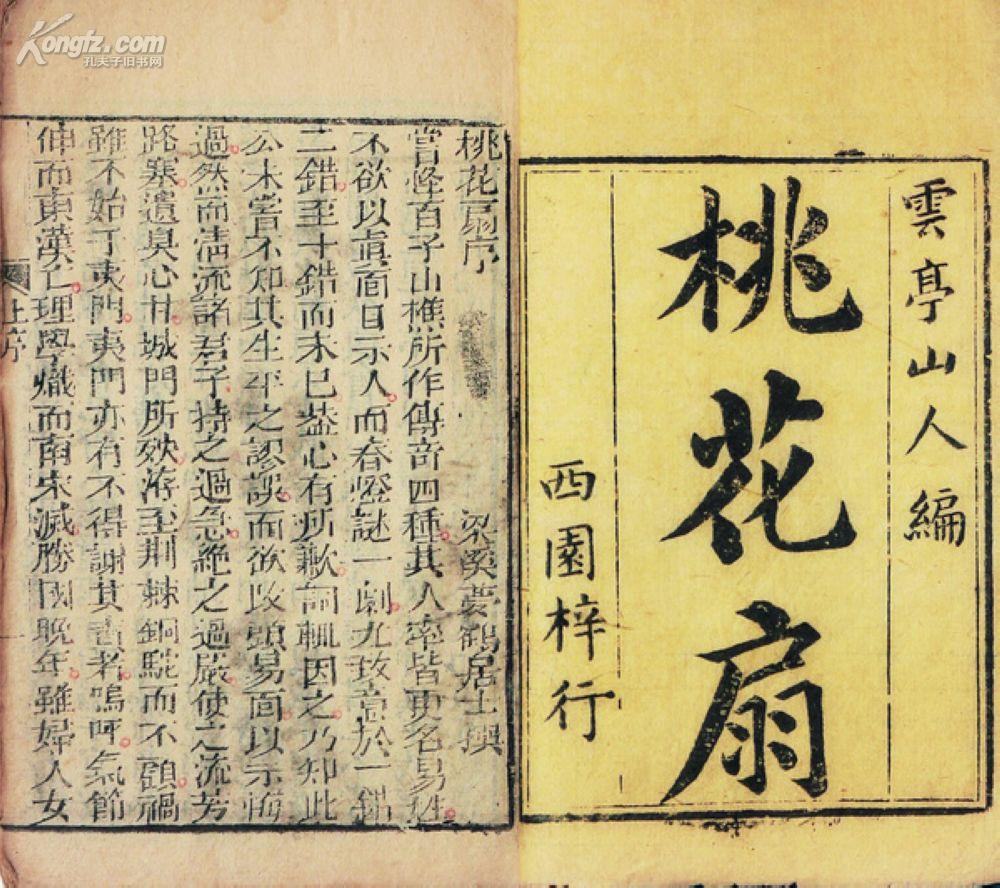 Kongfz.com
孔夫子旧书网
雲亭山人編
桃花扇
西園梓行
桃花扇序 梁溪夢鶴居士撰
嘗怪百子山樵所作傳竒四種其人率皆更名易姓
不欲以眞面目示人而春燈謎一劇尤致意於一錯
二錯至十錯而未已葢心有所歉詞輒因之乃知此
公未嘗不知其生平之謬誤而欲改頭易面以示悔
過然而清流諸君子持之過急絶之過嚴使之流芳
路塞遺臭心甘城門所殃洊至荆棘銅駝而不顧禍
雖不始于夷門夷門亦有不得謝其責者嗚呼氣節
伸而東漢亡理學熾而南宋滅勝國晚年雖婦人女
上序